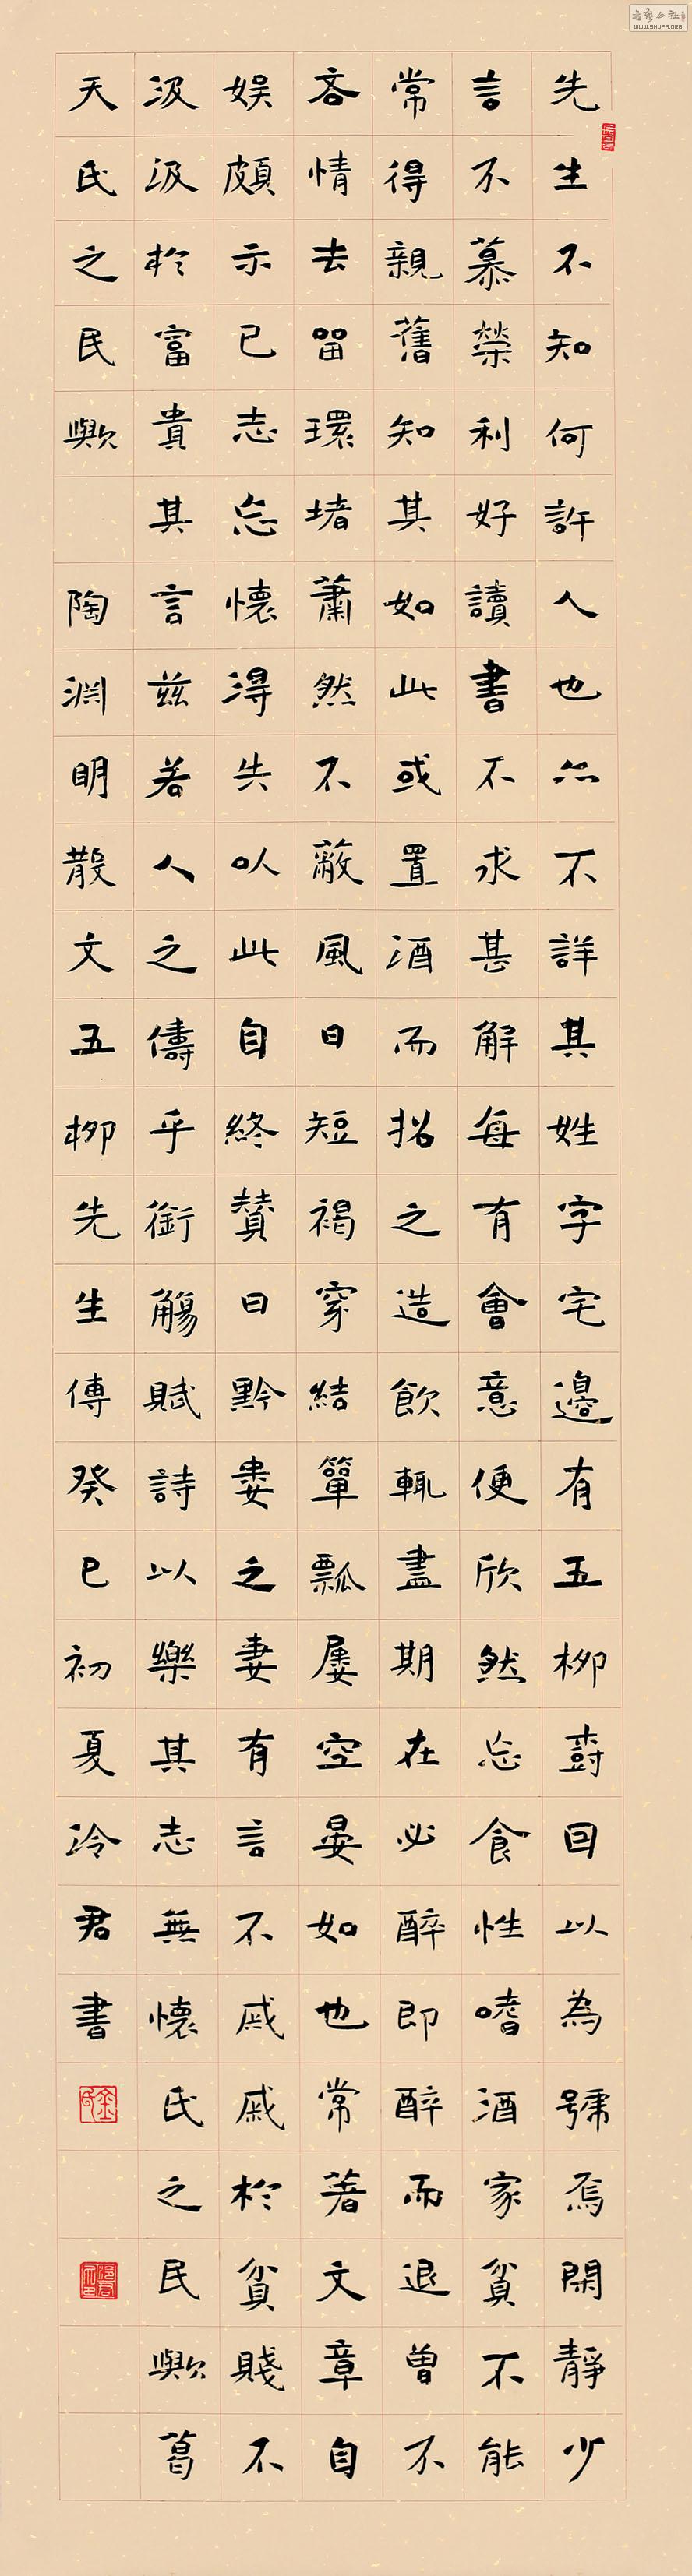 先生不知何許人也亦不詳其姓字宅邊有五柳樹因以為號焉閑靜少
言不慕榮利好讀書不求甚解每有會意便欣然忘食性嗜酒家貧不能
常得親舊知其如此或置酒而招之造飲輒盡期在必醉即醉而退曾不
吝情去留環堵蕭然不蔽風日短褐穿結簞瓢屢空晏如也常著文章自
娛頗示已志忘懷得失以此自終贊曰黔婁之妻有言不戚戚於貧賤不
汲汲於富貴其言茲若人之儔乎銜觴賦詩以樂其志無懷氏之民歟葛
天氏之民歟 陶淵明散文五柳先生傳癸巳初夏泠君書
WWW.SHUFA.ORG